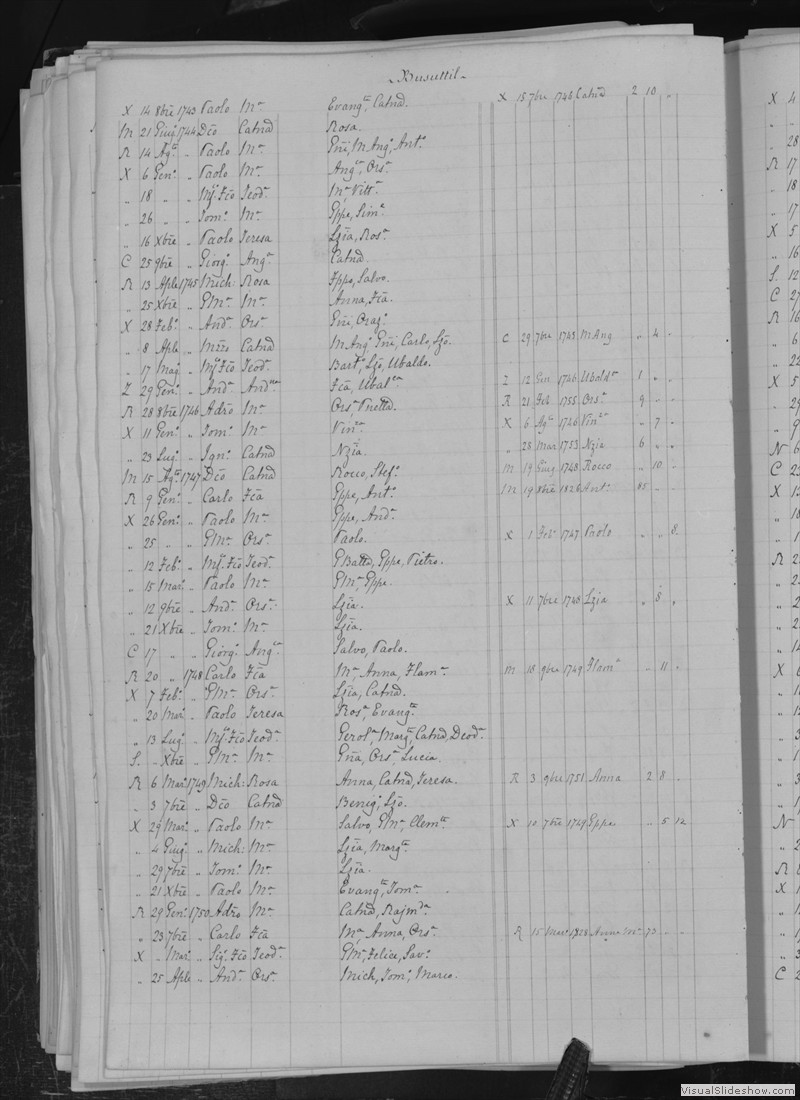 Busuttil
X 14 8bre 1743 Paolo Ma Evangta, Catnd. X 15 7bre 1746 Catnd 2 10 "
M 21 Giugo 1744 Dco Catnd Rosa.
R 14 Ago " Paolo Ma Gni, M Ango, Anto
X 6 Geno " Paolo Ma Anga, Orsa
" 18 " " Mro Fco Teoda Ma Vitta
" 26 " " Tomo Ma Gppe, Sime
" 16 Xbre " Paolo Teresa Lzia, Rosa
C 25 9bre " Giorgo Anga Catnd.
R 13 Aple 1745 Mich: Rosa Fppo, Salvo.
" 25 Xbre " GMa Ma Anna, Fca.
X 28 Febo " Ando Orsa Gni, Orazo
" 8 Aple " Catnd M Ango Gni, Carlo, Lzo. C 29 7bre 1743 M Ang " 4 "
" 17 Mago " Fco Teoda Barto, Lzo, Ubaldo.
Z 29 Geno " Ando Fca, Z 12 Gen 1746 1 " "
R 28 8bre 1746 Adro Ma Orsa, R 21 Feb 1755 Orsa 9 " "
X 11 Geno " Tomo Ma Vinzo X 6 Ago 1746 Vinzo " 7 "
" 23 Lugo " Igno Catnd Nzia. " 28 Mar 1753 Nzia 6 " "
M 15 Ago 1747 Dco Catnd Rocco, Stefo M 19 Giug 1748 Rocco " 10 "
R 9 Geno " Carlo Fca Gppe, Anto M 19 8bre 1826 Anto 85 " "
X 26 Geno " Paolo Ma Gppe, Ando
" 25 " " GMa Orsa Paolo. X 1 Febo 1747 Paolo " " 8
" 12 Febo " Fco Teoda GBatta, Gppe, Pietro.
" 15 Maro " Paolo Ma GMa, Gppe.
" 12 9bre " Ando Orsa Lzia. X 11 7bre 1748 Lzia " 8 "
" 21 Xbre " Tomo Ma Lzia.
C 17 " " Giorgo Anga Salvo, Paolo.
R 20 " 1748 Carlo Fca Ma, Anna, Flama M 18 9bre 1749 Flama " 11 "
X 7 Febo " GMa Orsa Lzia, Catnd.
" 20 Maro " Paolo Teresa Rosa, Evangta
" 13 Lugo " Fco Teoda Gerola, Marga, Catnd, Deoda
S " Xbre " GMa Ma Gna, Orsa, Lucia.
R 6 Maro 1749 Mich: Rosa Anna, Catnd, Teresa. R 3 9bre 1751 Anna 2 8 "
" 3 7bre " Dco Catnd Benigo, Lzo.
X 29 Maro " Paolo Ma Salvo, GMa, Clemte X 10 7bre 1749 Gppe " 5 12
" 4 Giugo " Mich: Ma Lzia, Marga
" 29 7bre " Tomo Ma Lzia.
" 21 Xbre " Paolo Ma Evangta, Toma
R 29 Geno 1750 Adro Ma Catnd, Rajmda
" 23 7bre " Carlo Fca Ma, Anna, Orsa R 15 Maro 1828 Anna Ma 73 " "
X " Maro " Sigo Fco Teoda GMa, Felice, Savo
" 25 Aple " Ando Orsa Mich, Tomo, Marco.
VisualSlideshow.com